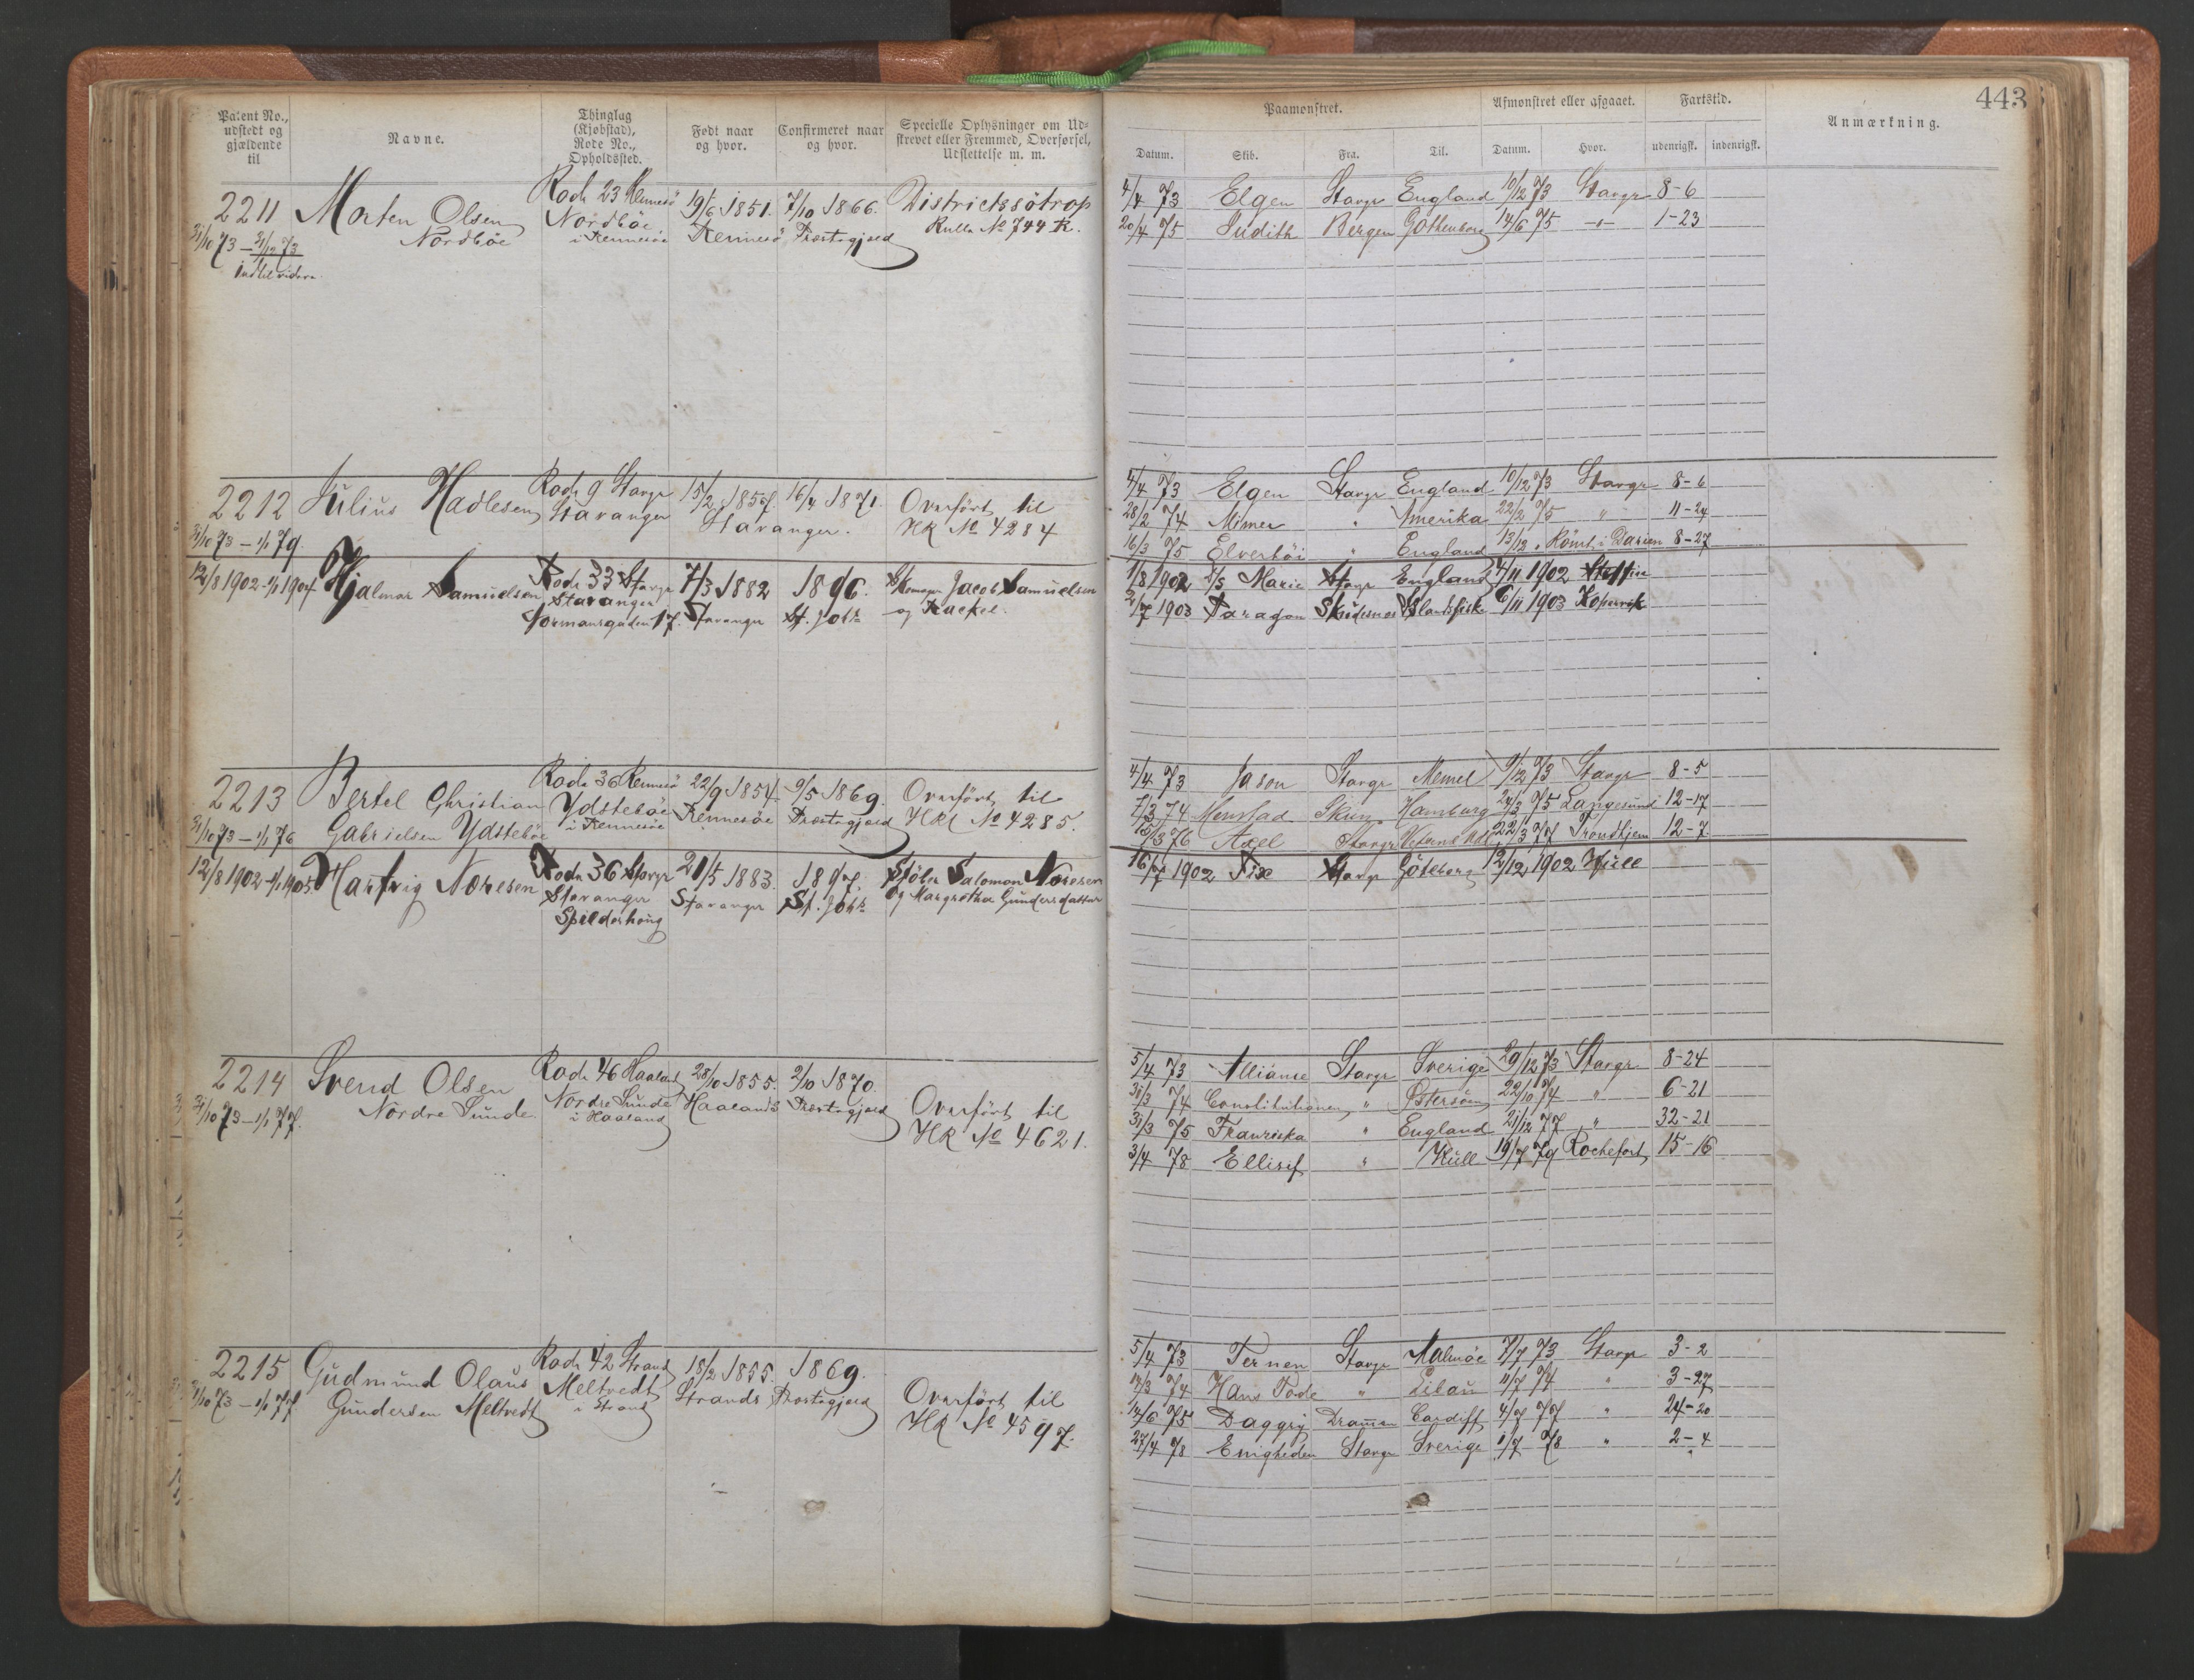 Patent No., udstedt og gjældende til
Navne.
Thinglag (Kjøbstad), Rode No., Opholdssted.
Født naar og hvor.
Confirmeret naar og hvor.
Specielle Oplysninger om Udskrevet eller Fremmed, Overførsel, Udslettelse m. m.
2211 Morten Olsen Rode 23 Rennesö 19/6 1851. 7/10 1866. Districtssötrop
Nordböe Nordböe Rennesö Præstegjæld Rulla No 744 R.
31/10 73 - 31/12 73 i Rennesöe
Indtil videre.
2212 Julius Hadlesen Rode 9 Stavgr 15/2 1857. 16/4 1871. Overført til
Stavanger Stavanger. HR No 4284
31/10 73 - 1/1 79.
12/8 1902 - 1/1 1904 Hjalmar Samuelsen Rode 33 Stavgr 7/3 1882 1896. Skomager Jacob Samuelsen
Stavanger Stavanger St. Joh. og Rackel.
Normansgaden 17.
2213 Bertel Christian Rode 36 Rennesö 22/9 1854. 9/5 1869. Overført til
Gabrielsen Ydsteböe Ydsteböe Rennesöe Præstegjæld HR No 4285.
31/10 73 - 1/1 76 i Rennesöe
12/8 1902 - 1/1 1905 Hartvig Noresen Rode 36 Stavgr 21/5 1883. 1897. Salomon Noresen
Stavanger Stavanger St. Joh. og Margretha Gundersdatter
Spilderhaug
2214 Svend Olsen Rode 46 Haaland 28/10 1855. 2/10 1870.
Nordre Sunde Nordre Sunde Haalands Præstegjæld Overført til
31/10 73 - 1/1 77. i Haaland HR No 4621.
2215 Gudmund Olaus Rode 42 Strand 18/2 1855. 1869.
Gundersen Meltvedt Meltvedt Strands Præstegjæld Overført til
31/10 73 - 1/1 77 i Strand HR No 4597.
443
Paamønstret.
Afmønstret eller afgaaet.
Fartstid.
Anmærkning.
Datum. Skib. Fra. Til. Datum. Hvor. udenrigsk. indenrigsk.
4/4 73 Elgen Stavgr England 10/12 73 Stavgr 8-6
20/4 75 Judith Bergen Gothenborg 14/6 75 -"- 1-23
4/4 73 Elgen Stavgr England 10/12 73 Stavgr 8-6
28/2 74 Mimer " Amerika 22/2 75 " 11-24
16/3 75 Elverhöi " England 13/12 " Römt i Darien 8-27
1/8 1902 Marie Stavgr England 4/11 1902 Stettin
2/7 1903 Paragon Skudesnes Islandsfiske 6/11 1903 Kopervik
4/4 73 Jason Stavgr Memel 9/12 73 Stavgr 8-5
7/3 74 Menstad Skien Hamburg 24/3 75 Langesund 12-17
15/3 76 Axel Stavgr 22/3 77 Trondhjem 12-7
16/7 1902 Fix Stavgr Göteborg 12/12 1902 Hull
5/4 73 Alliance Stavgr Sverige 29/12 73 Stavgr 8-24
31/3 74 Constitutionen " Østersöen 22/10 74 " 6-21
31/3 75 Franziska " England 21/12 77 " 32-21
3/4 78 Ellisif " Hull 19/7 79 Rochefort 15-16
5/4 73 Ternen Stavgr Malmöe 7/7 73 Stavgr 3-2
14/3 74 Hans Tode " Libau 11/7 74 " 3-27
14/6 75 Daggry Dramen Cardiff 4/7 77 " 24-20
27/4 78 Enigheden Stavgr Sverige 1/7 78 " 2-4